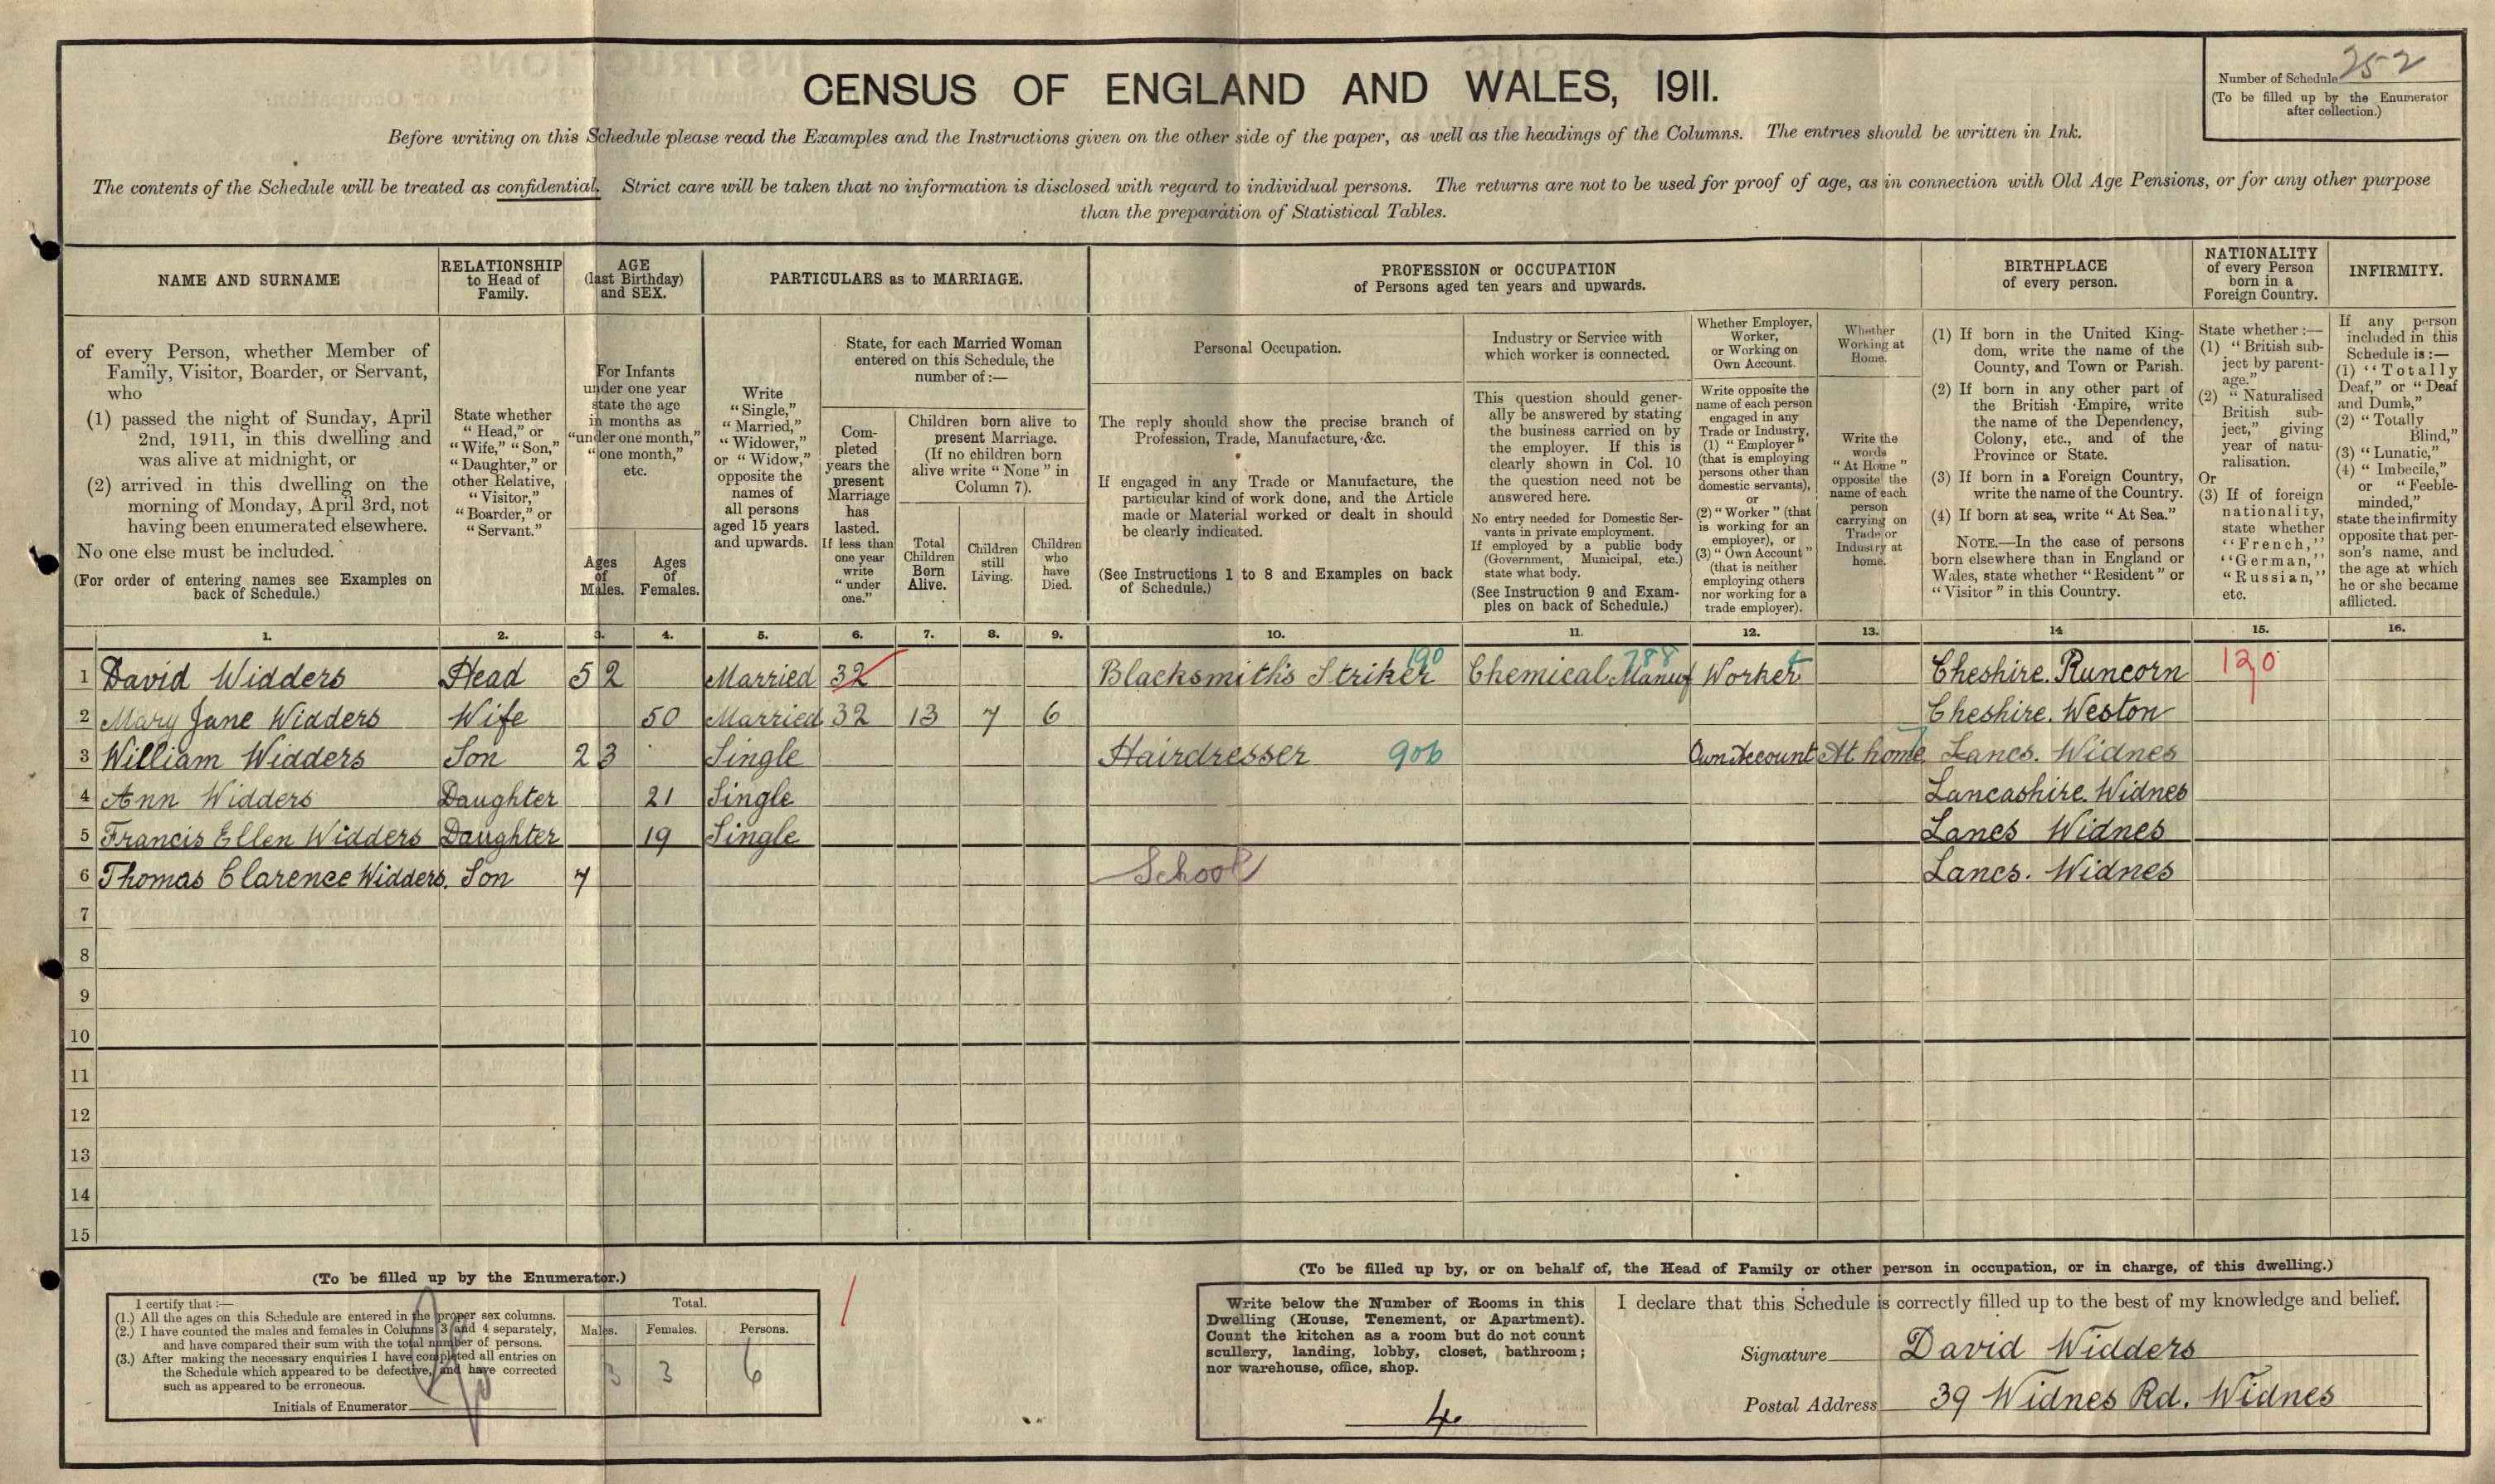 CENSUS OF ENGLAND AND WALES, 1911.
Number of Schedule 252
(To be filled up by the Enumerator
after collection.)
Before writing on this Schedule please read the Examples and the Instructions given on the other side of the paper, as well as the headings of the Columns. The entries should be written in Ink.
The contents of the Schedule will be treated as confidential. Strict care will be taken that no information is disclosed with regard to individual persons. The returns are not to be used for proof of age, as in connection with Old Age Pensions, or for any other purpose
than the preparation of Statistical Tables.
NAME AND SURNAME
of every Person, whether Member of
Family, Visitor, Boarder, or Servant,
who
(1) passed the night of Sunday, April
2nd, 1911, in this dwelling and
was alive at midnight, or
(2) arrived in this dwelling on the
morning of Monday, April 3rd, not
having been enumerated elsewhere.
No one else must be included.
(For order of entering names see Examples on
back of Schedule.)
RELATIONSHIP
to Head of
Family.
State whether
"Head," or
"Wife," "Son,"
"Daughter," or
other Relative,
"Visitor,"
"Boarder," or
"Servant."
AGE
(last Birthday)
and SEX.
For Infants
under one year
state the age
in months as
"under one month,"
"one month,"
etc.
Ages
of
Males.
Ages
of
Females.
PARTICULARS as to MARRIAGE.
Write
"Single,"
"Married,"
"Widower,"
or "Widow,"
opposite the
names of
all persons
aged 15 years
and upwards.
State, for each Married Woman
entered on this Schedule, the
number of :—
Com-
pleted
years the
present
Marriage
has
lasted.
If less than
one year
write
"under
one."
Children born alive to
present Marriage.
(If no children born
alive write "None" in
Column 7).
Total
Children
Born
Alive.
Children
still
Living.
Children
who
have
Died.
PROFESSION or OCCUPATION
of Persons aged ten years and upwards.
Personal Occupation.
The reply should show the precise branch of
Profession, Trade, Manufacture, &c.
If engaged in any Trade or Manufacture, the
particular kind of work done, and the Article
made or Material worked or dealt in should
be clearly indicated.
(See Instructions 1 to 8 and Examples on back
of Schedule.)
Industry or Service with
which worker is connected.
This question should gener-
ally be answered by stating
the business carried on by
the employer. If this is
clearly shown in Col. 10
the question need not be
answered here.
No entry needed for Domestic Ser-
vants in private employment.
If employed by a public body
(Government, Municipal, etc.)
state what body.
(See Instruction 9 and Exam-
ples on back of Schedule.)
Whether Employer,
Worker,
or Working on
Own Account.
Write opposite the
name of each person
engaged in any
Trade or Industry,
(1) "Employer"
(that is employing
persons other than
domestic servants),
or
(2) "Worker" (that
is working for an
employer), or
(3) "Own Account"
(that is neither
employing others
nor working for a
trade employer).
Whether
Working at
Home.
Write the
words
"At Home"
opposite the
name of each
person
carrying on
Trade or
Industry at
home.
BIRTHPLACE
of every person.
(1) If born in the United King-
dom, write the name of the
County, and Town or Parish.
(2) If born in any other part of
the British Empire, write
the name of the Dependency,
Colony, etc., and of the
Province or State.
(3) If born in a Foreign Country,
write the name of the Country.
(4) If born at sea, write "At Sea."
NOTE.—In the case of persons
born elsewhere than in England or
Wales, state whether "Resident" or
"Visitor" in this Country.
NATIONALITY
of every Person
born in a
Foreign Country.
State whether :—
(1) "British sub-
ject by parent-
age."
(2) "Naturalised
British sub-
ject," giving
year of natu-
ralisation.
Or
(3) If of foreign
nationality,
state whether
"French,"
"German,"
"Russian,"
etc.
INFIRMITY.
If any person
included in this
Schedule is :—
(1) "Totally
Deaf," or "Deaf
and Dumb,"
(2) "Totally
Blind,"
(3) "Lunatic,"
(4) "Imbecile,"
or "Feeble-
minded,"
state the infirmity
opposite that per-
son's name, and
the age at which
he or she became
afflicted.
1. 2. 3. 4. 5. 6. 7. 8. 9. 10. 11. 12. 13. 14 15. 16.
1 David Widders Head 52 Married 32 Blacksmith's Striker 190 Chemical Manuf 788 Worker Cheshire. Runcorn 120
2 Mary Jane Widders Wife 50 Married 32 13 7 6 Cheshire. Weston
3 William Widders Son 23 Single Hairdresser 906 Own Account At home Lancs. Widnes
4 Ann Widders Daughter 21 Single Lancashire. Widnes
5 Francis Ellen Widders Daughter 19 Single Lancs Widnes
6 Thomas Clarence Widders. Son 7 School Lancs. Widnes
7
8
9
10
11
12
13
14
15
(To be filled up by the Enumerator.)
I certify that :—
(1.) All the ages on this Schedule are entered in the proper sex columns.
(2.) I have counted the males and females in Columns 3 and 4 separately,
and have compared their sum with the total number of persons.
(3.) After making the necessary enquiries I have completed all entries on
the Schedule which appeared to be defective, and have corrected
such as appeared to be erroneous.
Initials of Enumerator
Total.
Males. Females. Persons.
3 3 6
(To be filled up by, or on behalf of, the Head of Family or other person in occupation, or in charge, of this dwelling.)
Write below the Number of Rooms in this
Dwelling (House, Tenement, or Apartment).
Count the kitchen as a room but do not count
scullery, landing, lobby, closet, bathroom;
nor warehouse, office, shop.
4
I declare that this Schedule is correctly filled up to the best of my knowledge and belief.
Signature David Widders
Postal Address 39 Widnes Rd. Widnes